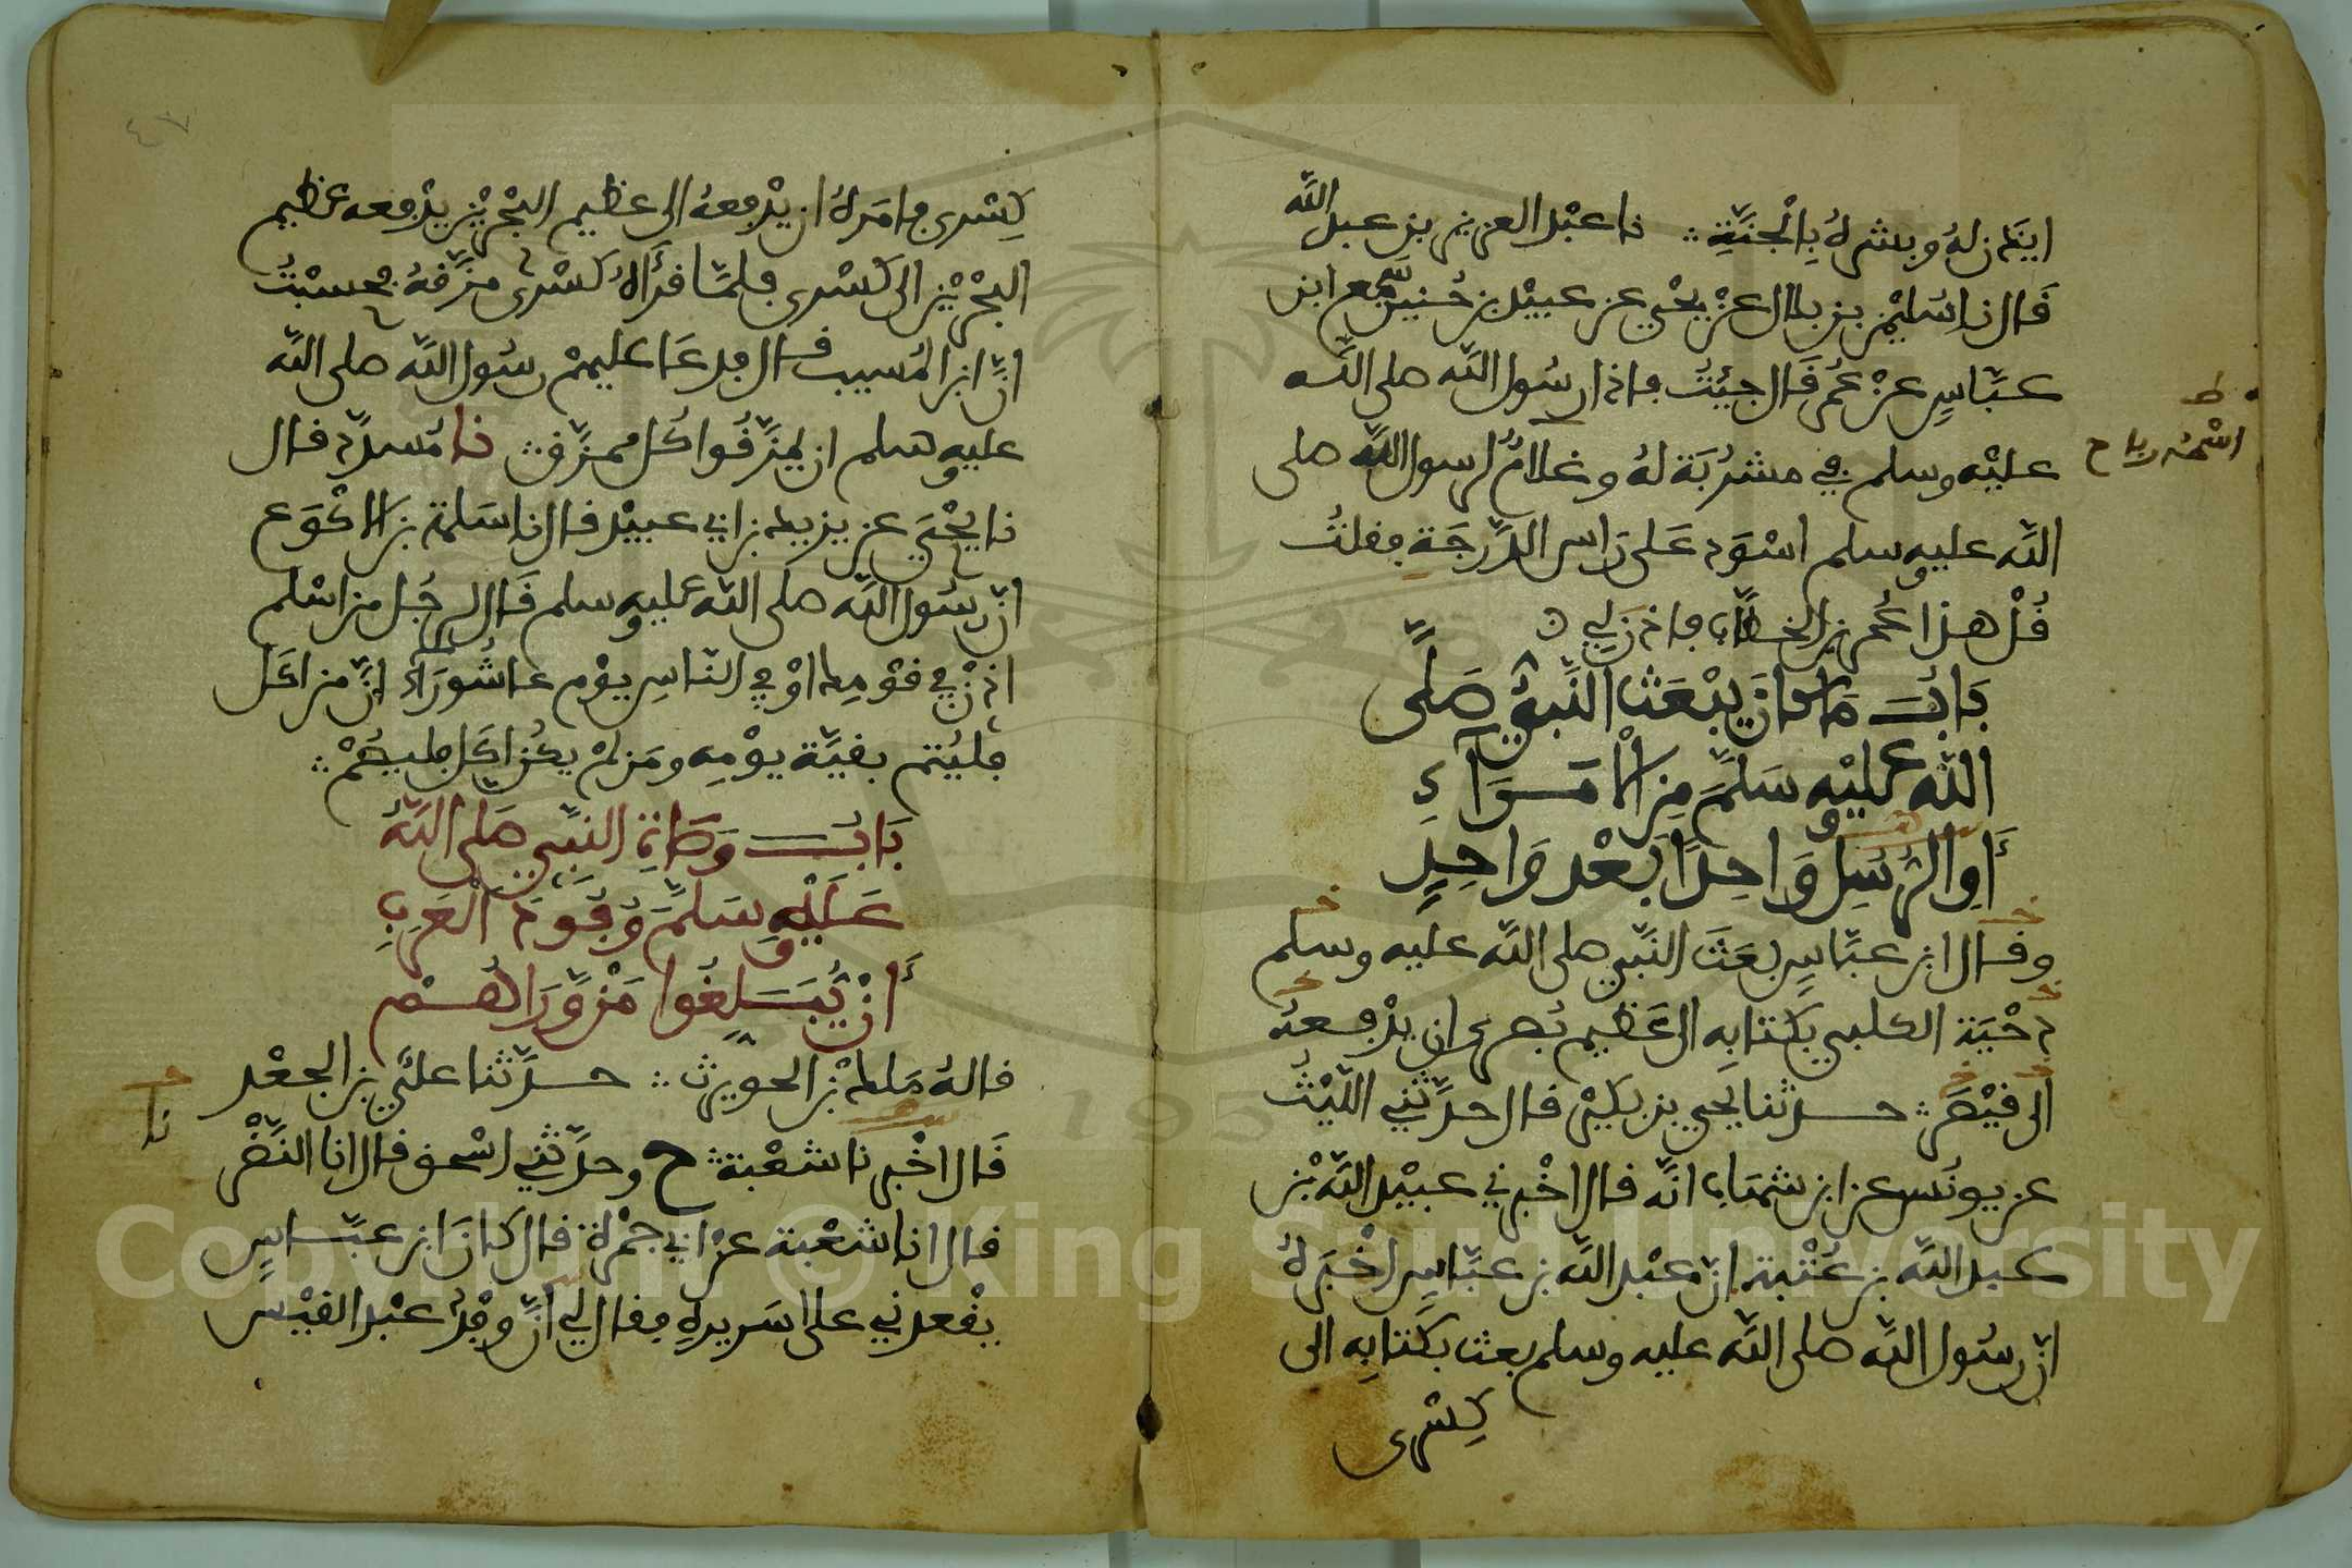 ايذن له وبشره بِالْجنَّةِ ∴ نا عبْد العزيز بن عبد الله
قَال نا سُليْمن بن بلال عنْ يحْيى عن عبيْد بن حُنين سمع ابن
عبَّاسٍ عنْ عُمر قَال جيْتُ فاذا رسُول اللَّه صلى اللَّه
عليْه وسلم في مشرُبَة لهُ وغلامٌ لرسول اللَّه صلى
اللَّه عليه وسلم اسْوَد عَلى رَاس الدَّرجَة فقلتُ
قُلْ هذا عُمر بن الخطَّاب فاذن لي
ط
اسْمه رباح
بَابُ مَا كانَ يبْعَث النَّبيُّ صَلَّى
اللَّه عليْه وسَلَّمَ مِنَ الْأمَرَاءِ
أَوِ الرُّسُلِ وَاحِدًا بَعْد وَاحِدٍ
وقال ابن عبَّاسٍ بعَثَ النَّبي صلى اللَّه عليه وسلم
دحْيَة الكلبي بكتابِه الى عَظيم بُصرى ان يدْفعهُ
الى قيْصَر ∴ حدثنا يحيى بن بكيْر قال حدَّثني اللَّيْثُ
عن يونُس عن ابن شهَاب انَّه قال اخْبرني عبيْد اللَّه بْن
عبد اللَّه بن عُتْبة انَّ عبْد اللَّه بن عبَّاسٍ اخْبَرهُ
انَّ رسُول اللَّه صلى اللَّه عليه وسلم بعث بكتابِه الى
كِسْرى
٤٧
كِسْرى فامَرهُ ان يدْفعهُ الى عظيم البحْريْن يدْفعه عظيم
البحْريْن الى كسْرى فلمَّا قرأهُ كسْرى مزَّقهُ فحسبْتُ
انَّ ابن المُسيب قال فدعَا عليهمْ رسُول اللَّه صلى اللَّه
عليه وسلم ان يمزَّقُوا كُل ممزَّق ∴ نا مُسدَّد قال
نا يحْيَى عن يزيد بن ابي عبيْد قال نا سَلمة بن الاكْوَع
انَّ رسُول اللَّه صلى اللَّه عليه وسلم قَال لرجُل من اسْلم
اذنْ في قوْمك اوْ في النَّاسِ يوْم عاشُورَاء انَّ من اكَل
فليُتم بقيَّة يوْمِه ومَن لمْ يكُن اكَل فليصُمْ ∴
بَابُ وَصَاةِ النبَّي صَلى اللَّهُ
عَلَيْهِ وسَلمَّ وُفُودَ الْعَربِ
أَنْ يُبَلِّغُوا مَنْ وَّرَاءهُمْ
قالهُ مَلك بْن الحويرث ∴ حدَّثنا عليّ بن الجعْد
نا
قَال اخْبرنا شعْبة ∴ ح وحدَّثني اسْحق قال انا النَّضْر
قال انا شعْبة عنْ ابي جمْرة قال كانَ ابن عبَّاسٍ
يقْعدني على سَريرهِ فقال لي انَّ وفْد عبْد القيْس